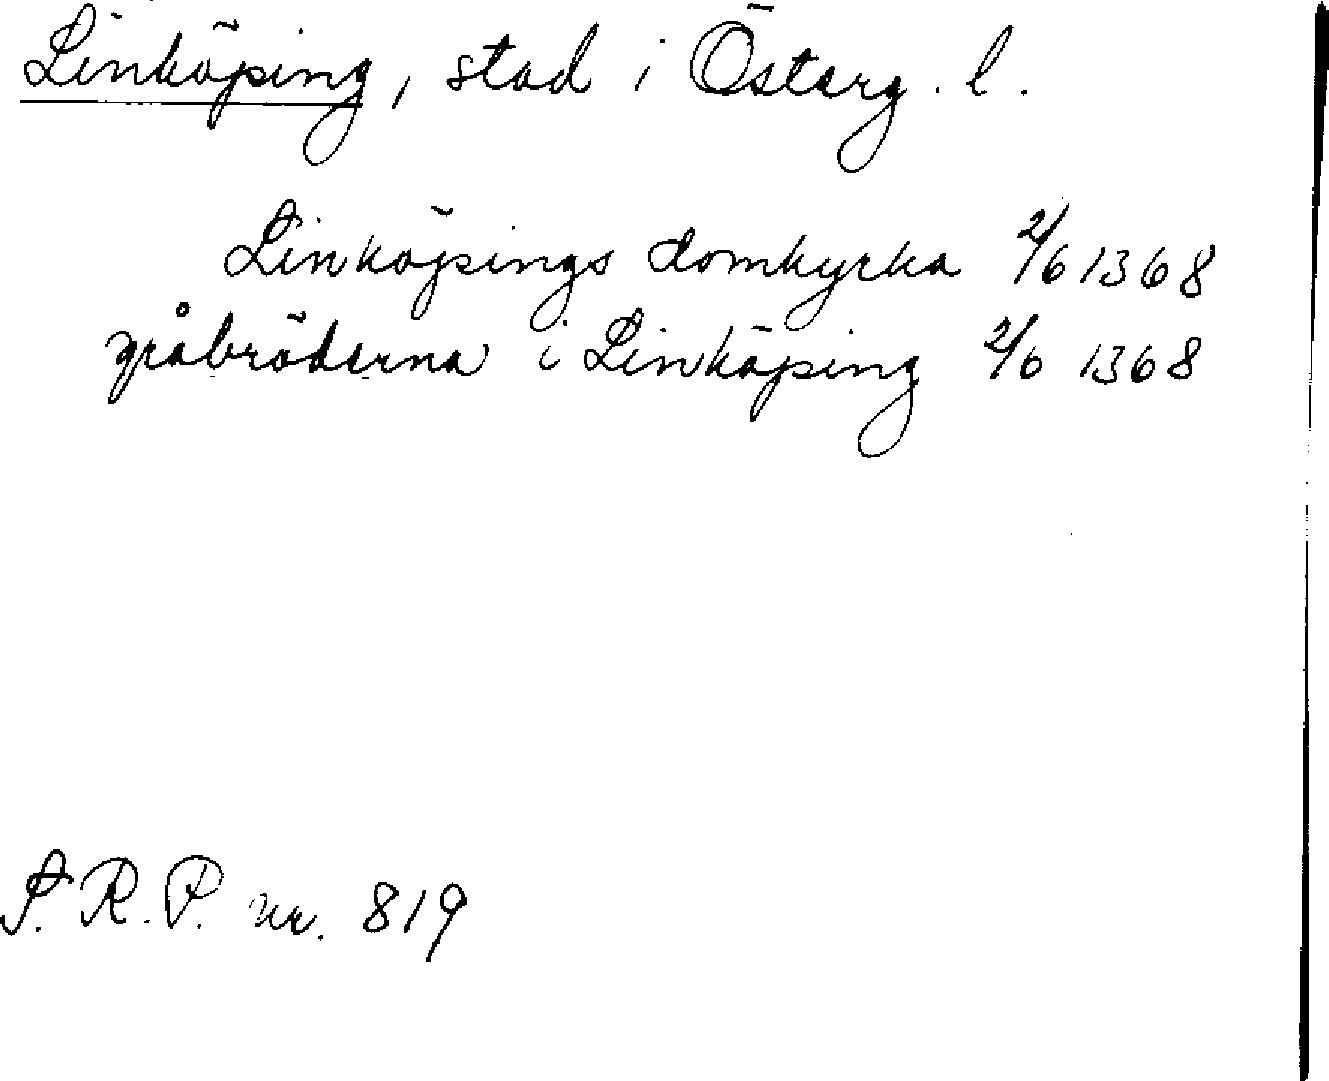 Linköping, stad i Österg. l.
Linköpings domkyrka 2/6 1368
gråbröderna i Linköping 2/6 1368
S. R. P. nr. 819